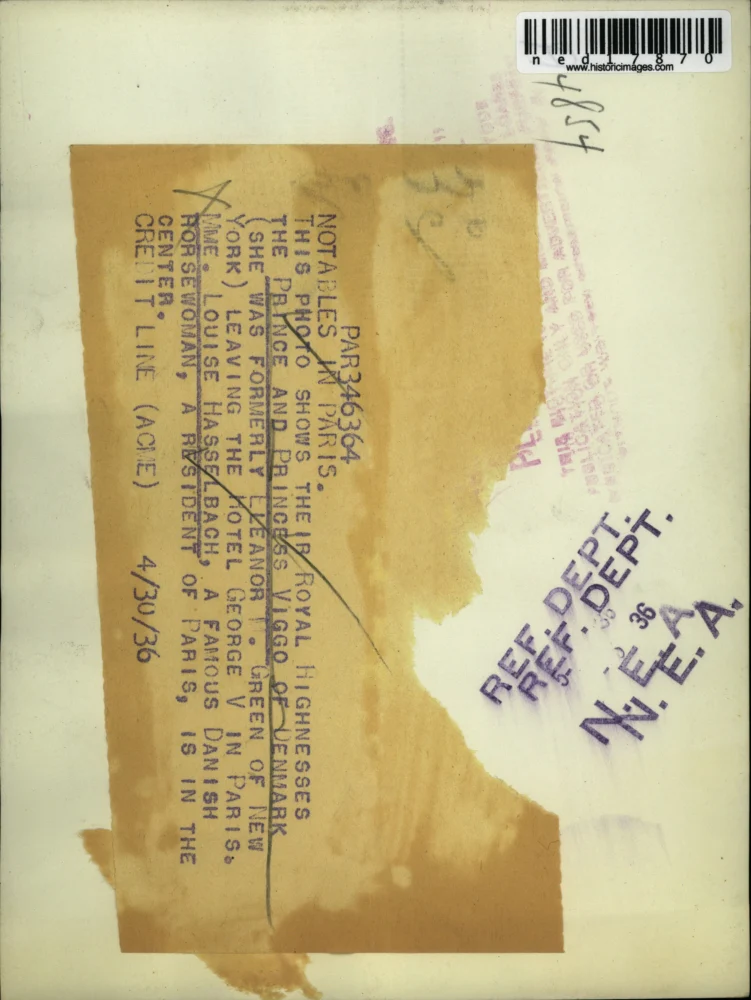 ned17870
www.historicimages.com
4854
PAR346364
NOTABLES IN PARIS.
THIS PHOTO SHOWS THEIR ROYAL HIGHNESSES
THE PRINCE AND PRINCESS VIGGO OF DENMARK
(SHE WAS FORMERLY ELEANOR GREEN OF NEW
YORK) LEAVING THE HOTEL GEORGE V IN PARIS.
MME. LOUISE HASSELBACH, A FAMOUS DANISH
HORSEWOMAN, A RESIDENT OF PARIS, IS IN THE
CENTER.
CREDIT LINE (ACME) 4/30/36
REF. DEPT.
REF. DEPT.
36
N. E. A.
N. E. A.